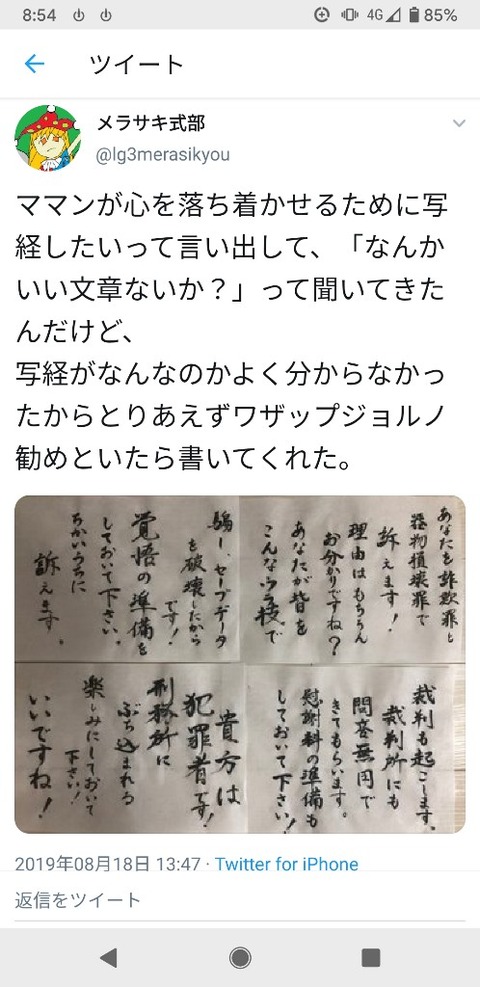 8:54
4G
85%
ツイート
メラサキ式部
@lg3merasikyou
ママンが心を落ち着かせるために写
経したいって言い出して、「なんか
いい文章ないか？」って聞いてきた
んだけど、
写経がなんなのかよく分からなかっ
たからとりあえずワザップジョルノ
勧めといたら書いてくれた。
あなたを詐欺罪と
器物損壊罪で
訴えます！
理由はもちろん
お分かりですね？
あなたが皆を
こんなウラ技で
騙し、セーブデータ
を破壊したから
です！
覚悟の準備を
しておいて下さい。
ちかいうちに
訴えます。
裁判も起こします。
裁判所にも
問答無用で
きてもらいます。
慰謝料の準備も
しておいて下さい！
貴方は
犯罪者です！
刑務所に
ぶち込まれる
楽しみにしておいて
下さい！
いいですね！
2019年08月18日 13:47 · Twitter for iPhone
返信をツイート